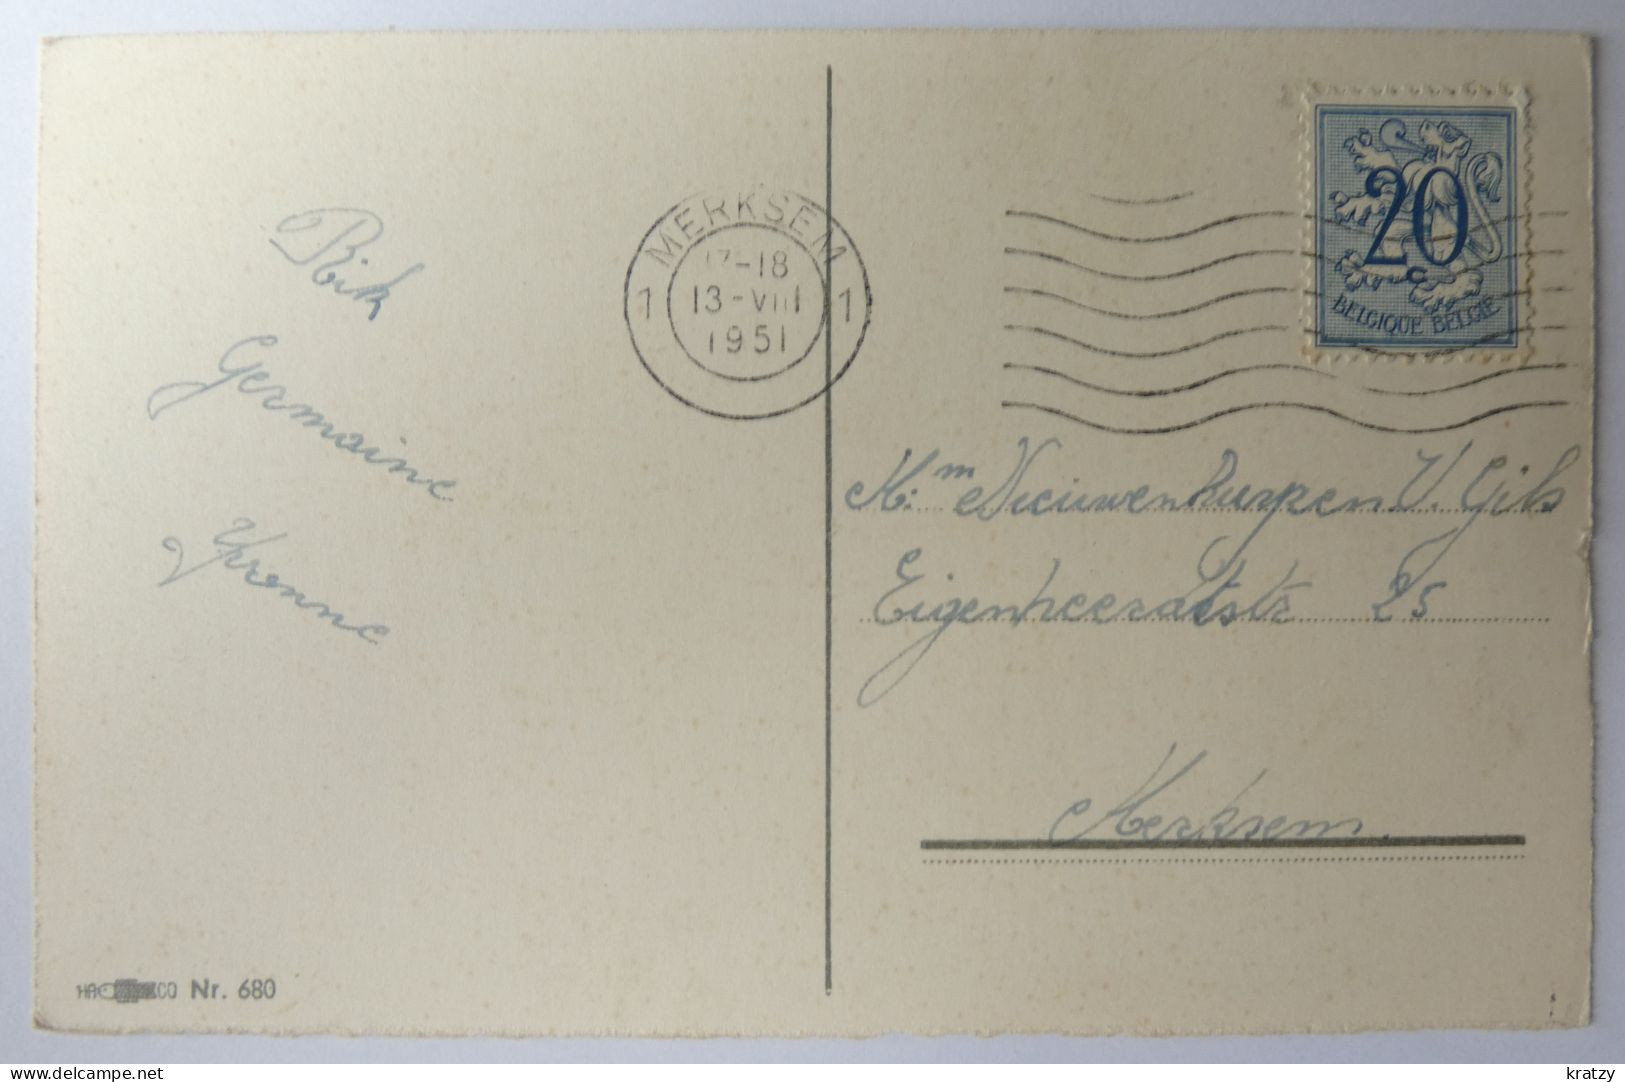 MERKSEM
17-18
1 13-VIII 1
1951
20
c
BELGIQUE BELGIE
Rik
Germaine
Yvonne
M: m Nieuwenhuyzen V. Gils
Eigenheerdstr 25
Merksem.
HA CO Nr. 680
delcampe.net
kratzy